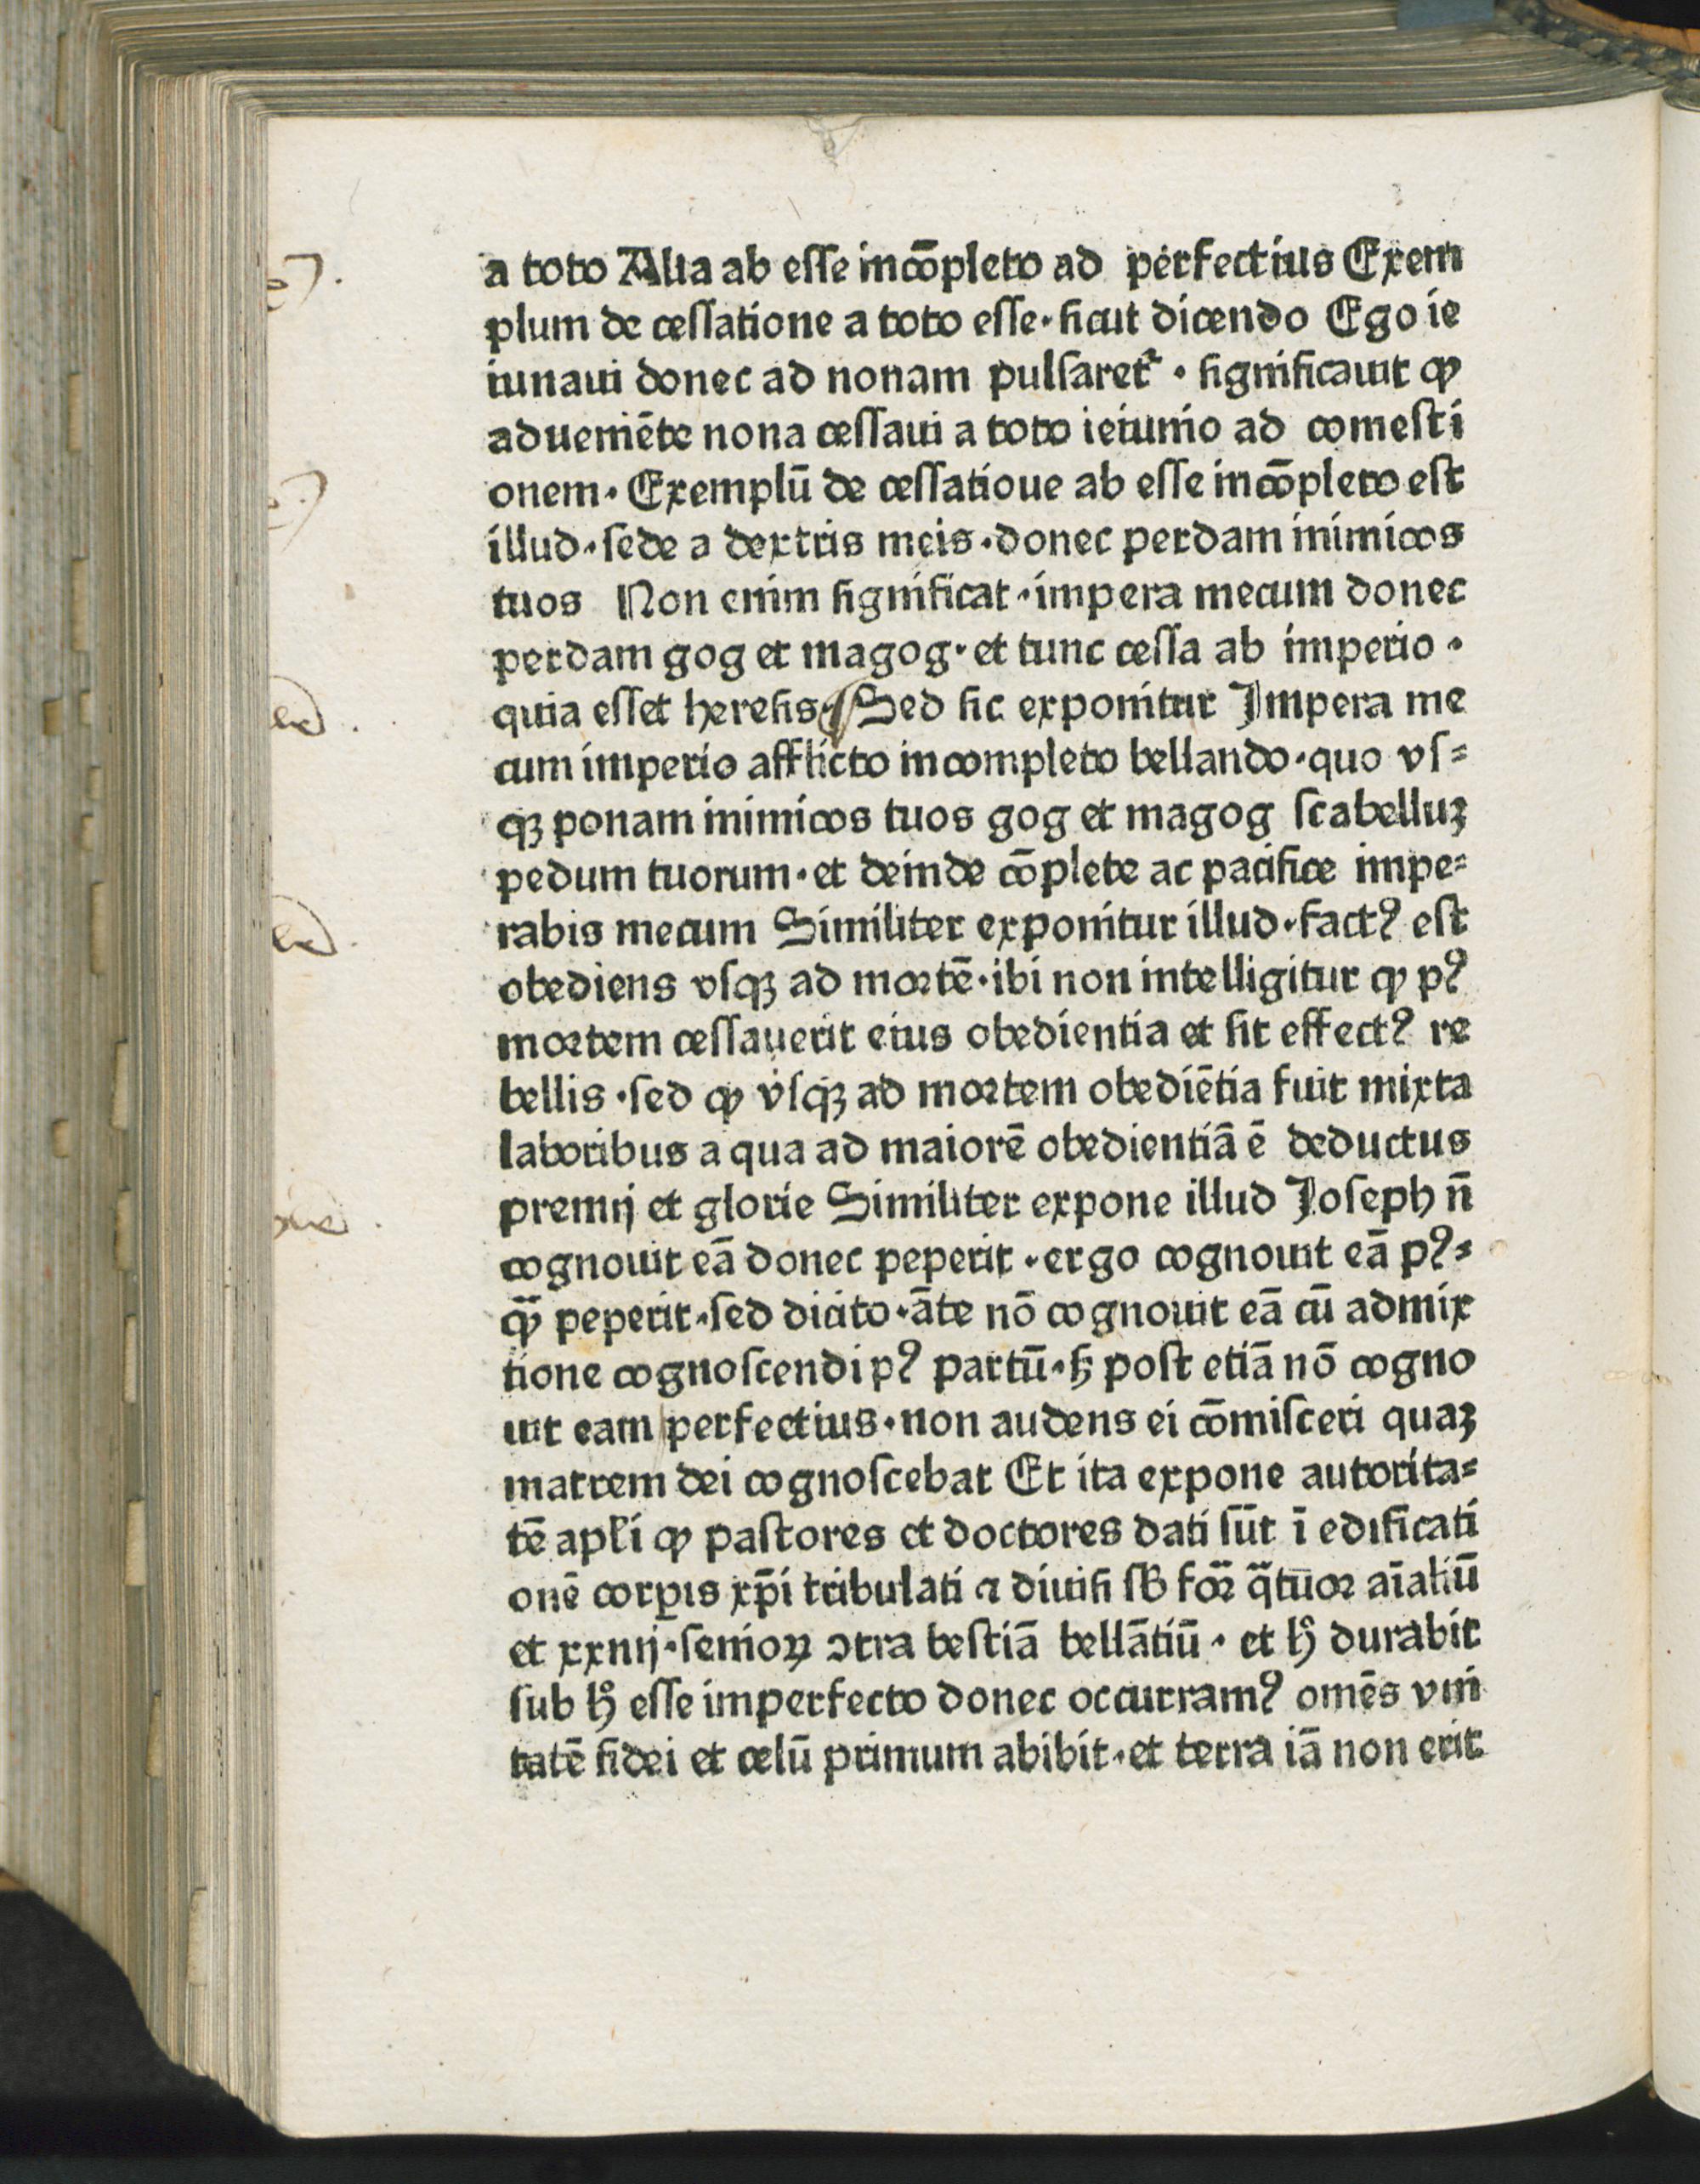 a toto Alia ab eſſe incōpleto ad perfectius Exem
plum de ceſſatione a toto eſſe · ſicut dicendo Ego ie
iunaui donec ad nonam pulſaret᷑ · ſignificauit ꝙ
adueniēte nona ceſſaui a toto ieiunio ad comeſti
onem · Exemplū de ceſſatioue ab eſſe incōpleto eſt
illud · ſede a dextris meis · donec perdam inimicos
tuos Non enim ſignificat · impera mecum donec
perdam gog et magog · et tunc ceſſa ab imperio ·
quia eſſet hereſis · Sed ſic exponitur Impera me
cum imperio afflicto incompleto bellando · quo vſ⸗
qꝫ ponam inimicos tuos gog et magog ſcabelluꝫ
pedum tuorum · et deinde cōplete ac pacifice impe⸗
rabis mecum Similiter exponitur illud · factꝰ eſt
obediens vſqꝫ ad mortē · ibi non intelligitur ꝙ pꝰ
mortem ceſſauerit eius obedientia et ſit effectꝰ re
bellis · ſed ꝙ vſqꝫ ad mortem obediētia fuit mixta
laboribus a qua ad maiorē obedientiā ē deductus
premij et glorie Similiter expone illud Joſeph n̄
cognouit eā donec peperit · ergo cognouit eā pꝰ⸗
ꝙ̄ peperit · ſed dicito · āte nō cognouit eā cū admix
tione cognoſcendi pꝰ partū · ſꝫ poſt etiā nō cogno
uit eam perfectius · non audens ei cōmiſceri quaꝫ
matrem dei cognoſcebat Et ita expone autorita⸗
tē apl̄i ꝙ paſtores et doctores dati ſūt ī edificati
onē corꝑis xp̄i tribulati ⁊ diuiſi ſb̄ for̄ q̄tuor aīaliū
et xxiiij · ſenioꝝ ↄtra beſtiā bellātiū · et hͦ durabit
ſub hͦ eſſe imperfecto donec occurramꝰ omēs vni
tatē fidei et celū primum abibit · et terra iā non erit